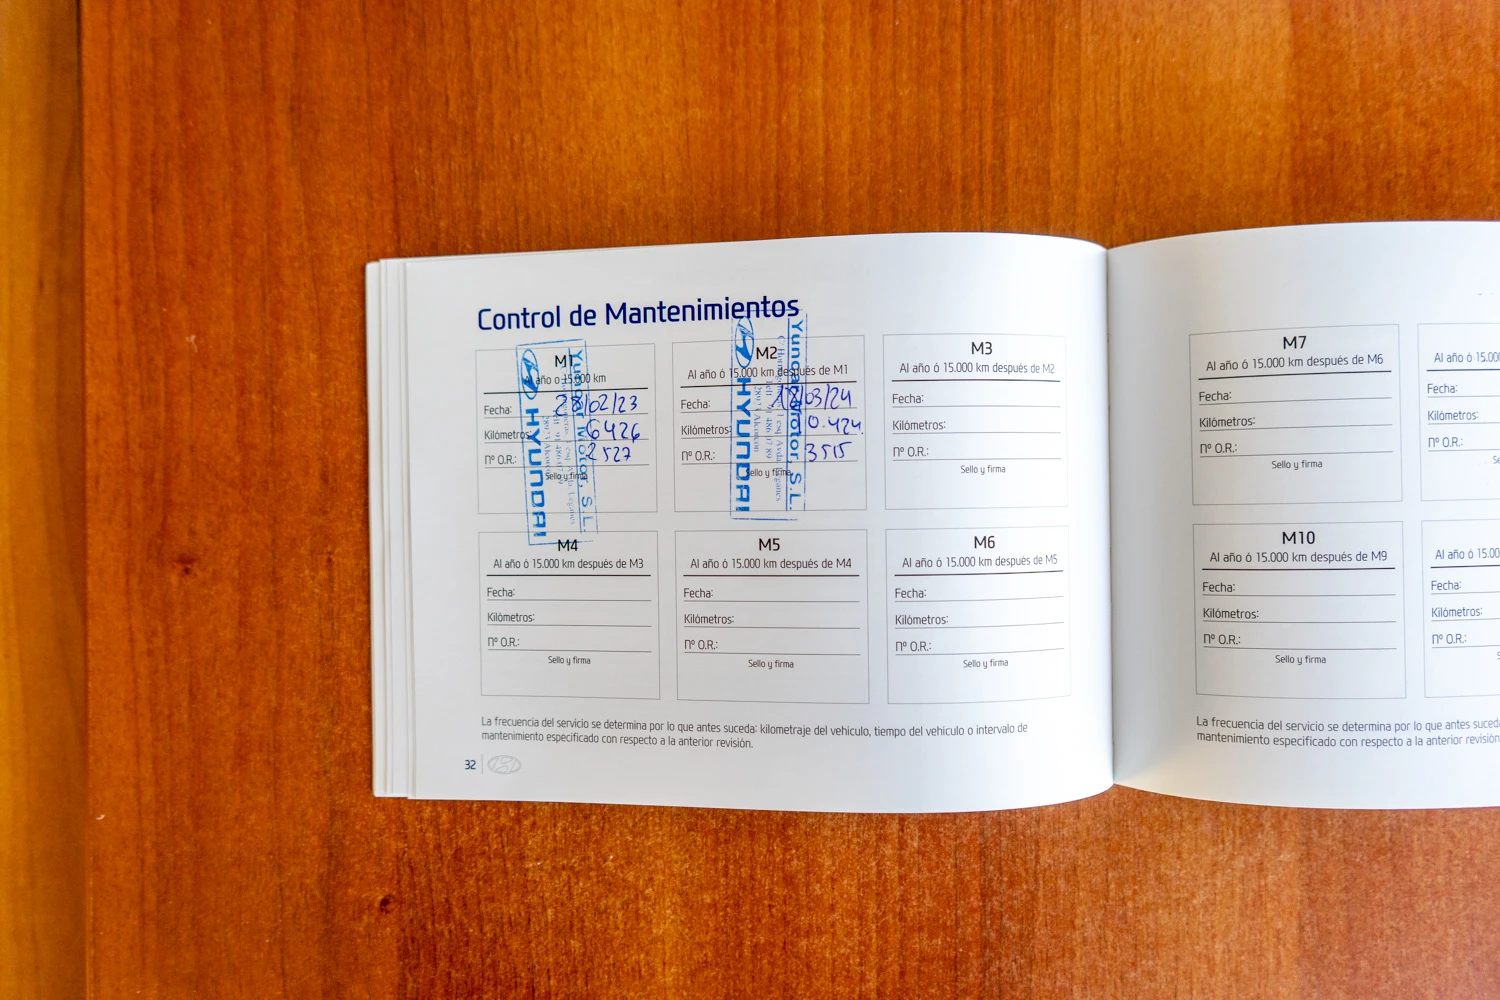 Control de Mantenimientos
M1
Al año o 15.000 km
Fecha: 28/02/23
Kilómetros: 6426
Nº O.R.: 2527
Sello y firma
Yuncar Motor, S.L.
HYUNDAI
M2
Al año ó 15.000 km después de M1
Fecha: 18/03/24
Kilómetros: 10.424
Nº O.R.: 3515
Sello y firma
Yuncar Motor, S.L.
HYUNDAI
M3
Al año ó 15.000 km después de M2
Fecha:
Kilómetros:
Nº O.R.:
Sello y firma
M4
Al año ó 15.000 km después de M3
Fecha:
Kilómetros:
Nº O.R.:
Sello y firma
M5
Al año ó 15.000 km después de M4
Fecha:
Kilómetros:
Nº O.R.:
Sello y firma
M6
Al año ó 15.000 km después de M5
Fecha:
Kilómetros:
Nº O.R.:
Sello y firma
La frecuencia del servicio se determina por lo que antes suceda: kilometraje del vehículo, tiempo del vehículo o intervalo de
mantenimiento especificado con respecto a la anterior revisión.
32
M7
Al año ó 15.000 km después de M6
Fecha:
Kilómetros:
Nº O.R.:
Sello y firma
Al año ó 15.00
Fecha:
Kilómetros:
Nº O.R.:
M10
Al año ó 15.000 km después de M9
Fecha:
Kilómetros:
Nº O.R.:
Sello y firma
Al año ó 15.00
Fecha:
Kilómetros:
Nº O.R.:
La frecuencia del servicio se determina por lo que antes suceda
mantenimiento especificado con respecto a la anterior revisión